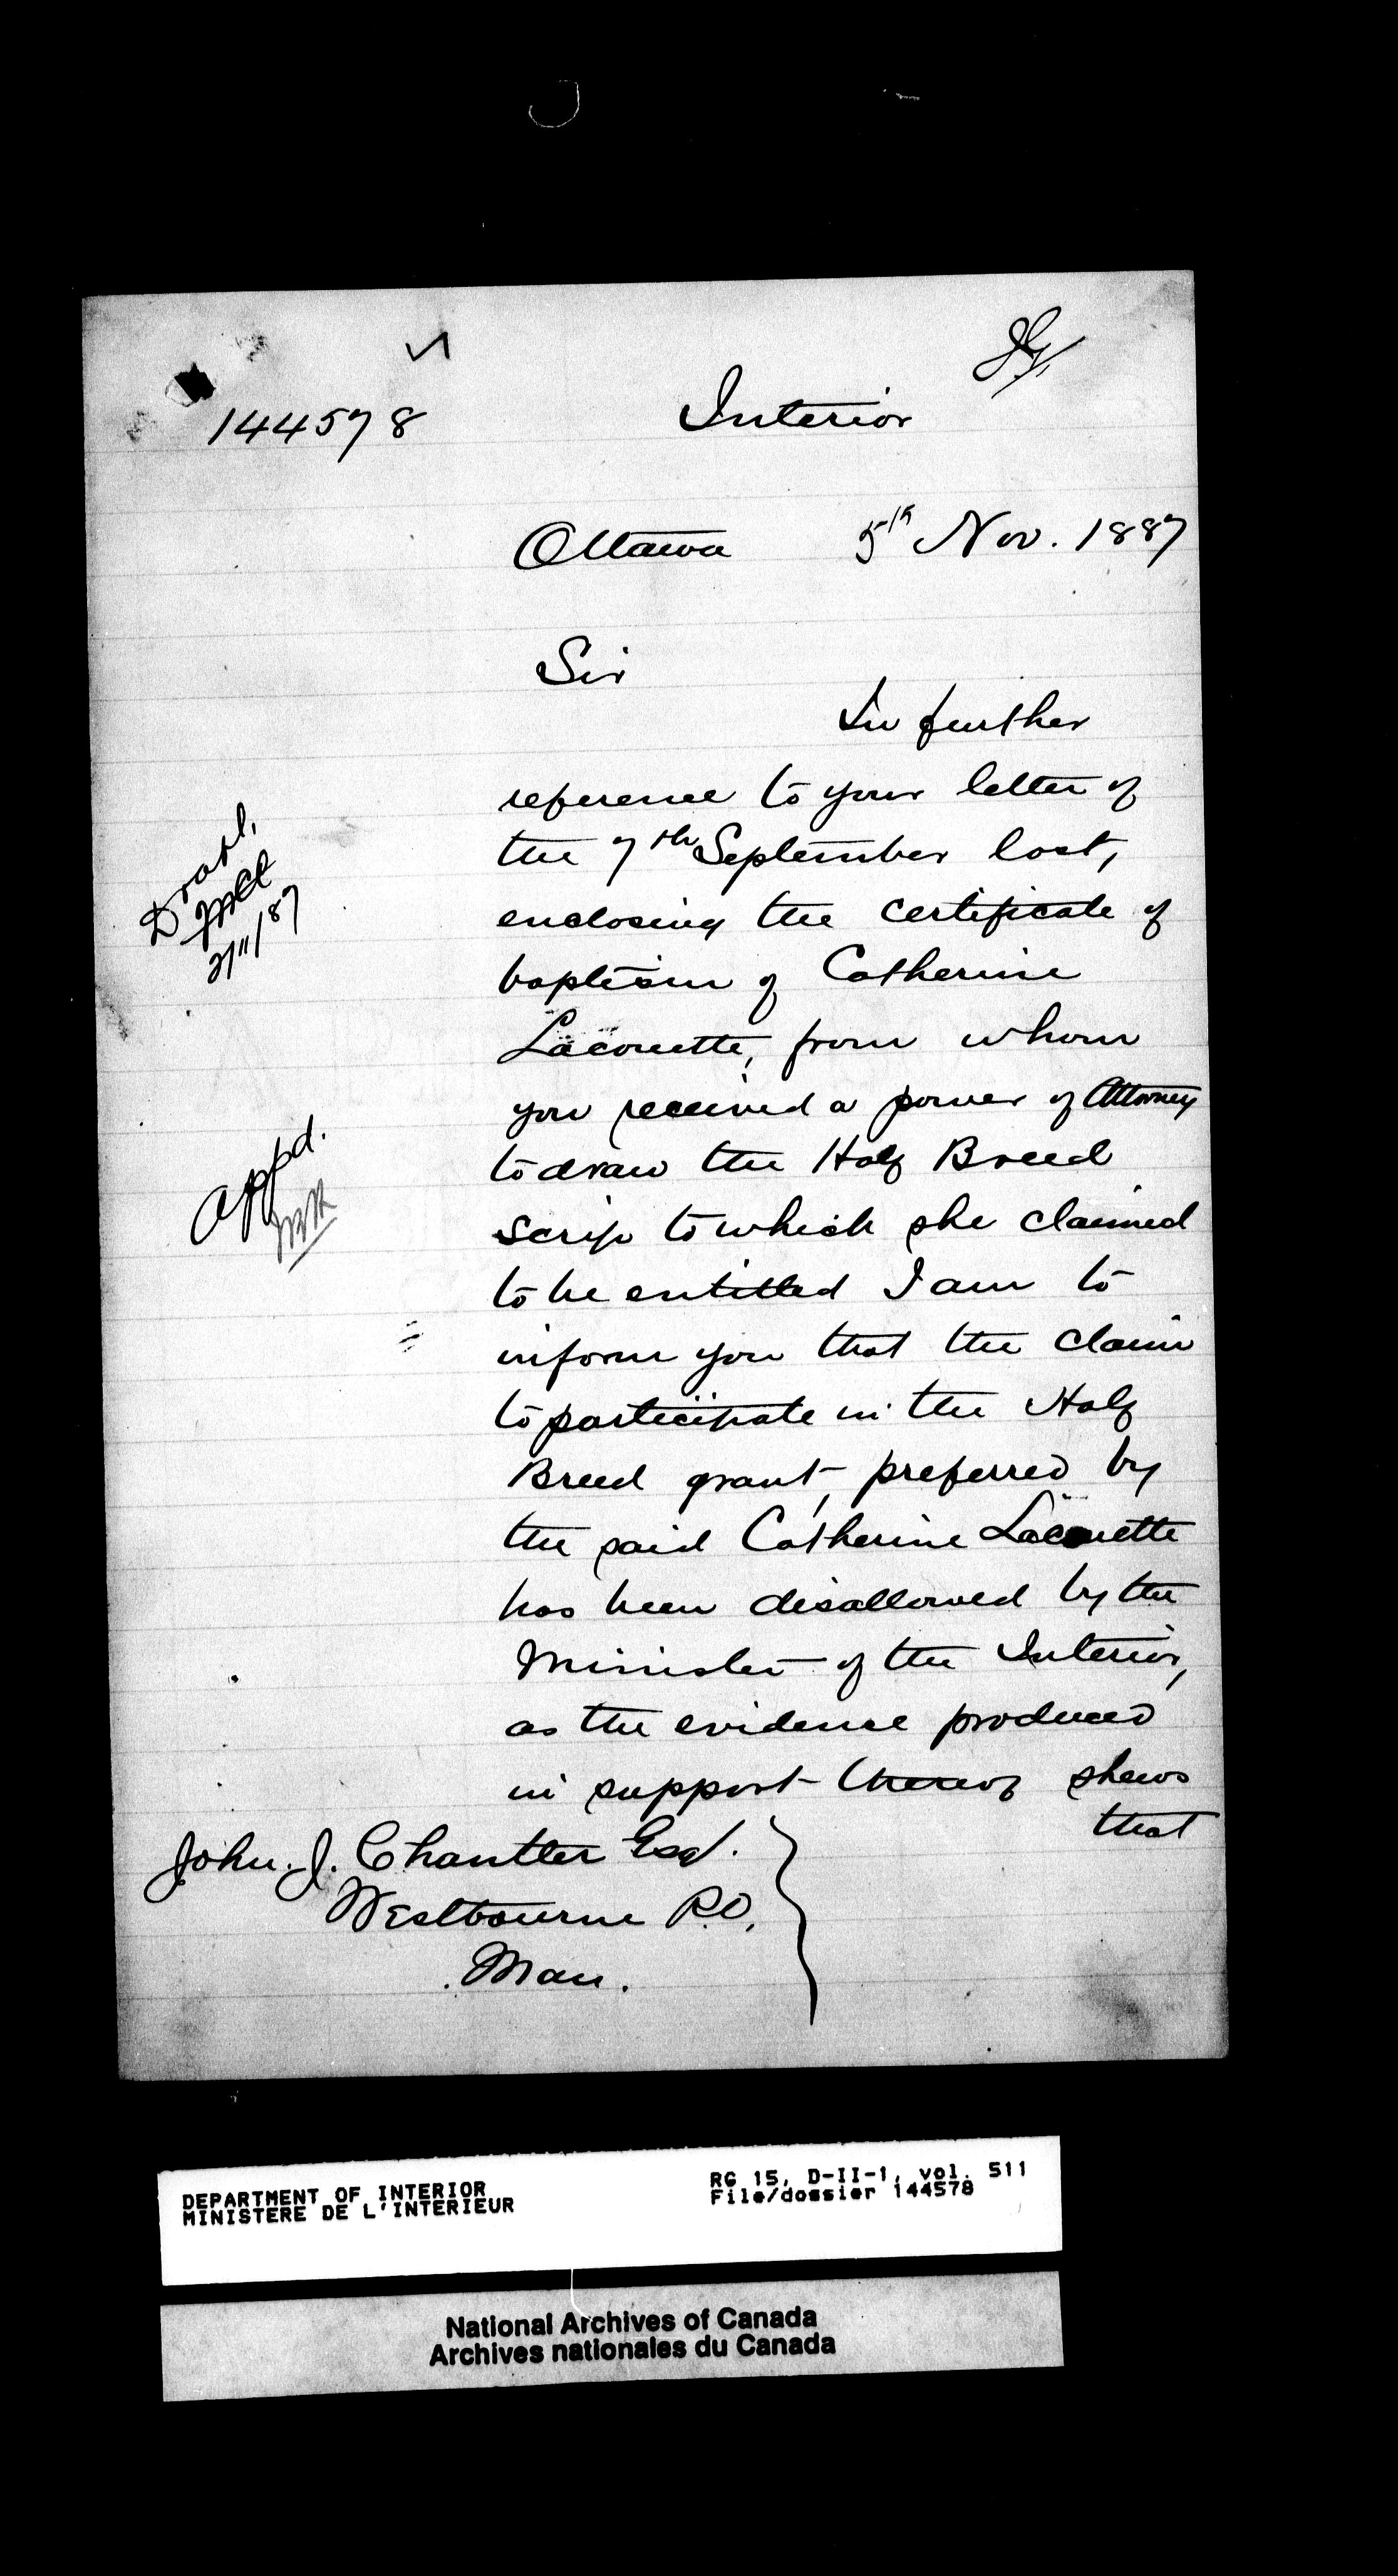 144578
Interior
Ottawa 5th Nov. 1887
Sir
In further
reference to your letter of
the 7th September last,
enclosing the certificate of
baptism of Catherine
Lacouette, from whom
you received a power of Attorney
to draw the Half Breed
scrip to which she claimed
to be entitled I am to
inform you that the claim
to participate in the Half
Breed grant, preferred by
the said Catherine Lacouette
has been disallowed by the
Minister of the Interior,
as the evidence produced
in support thereof shews
that
Draft,
2/11/87
Appd.
John. J. Chantler Esq.
Westbourne P.O.
Man.
DEPARTMENT OF INTERIOR
MINISTERE DE L'INTERIEUR
RG 15, D-II-1, vol. 511
File/dossier 144578
National Archives of Canada
Archives nationales du Canada